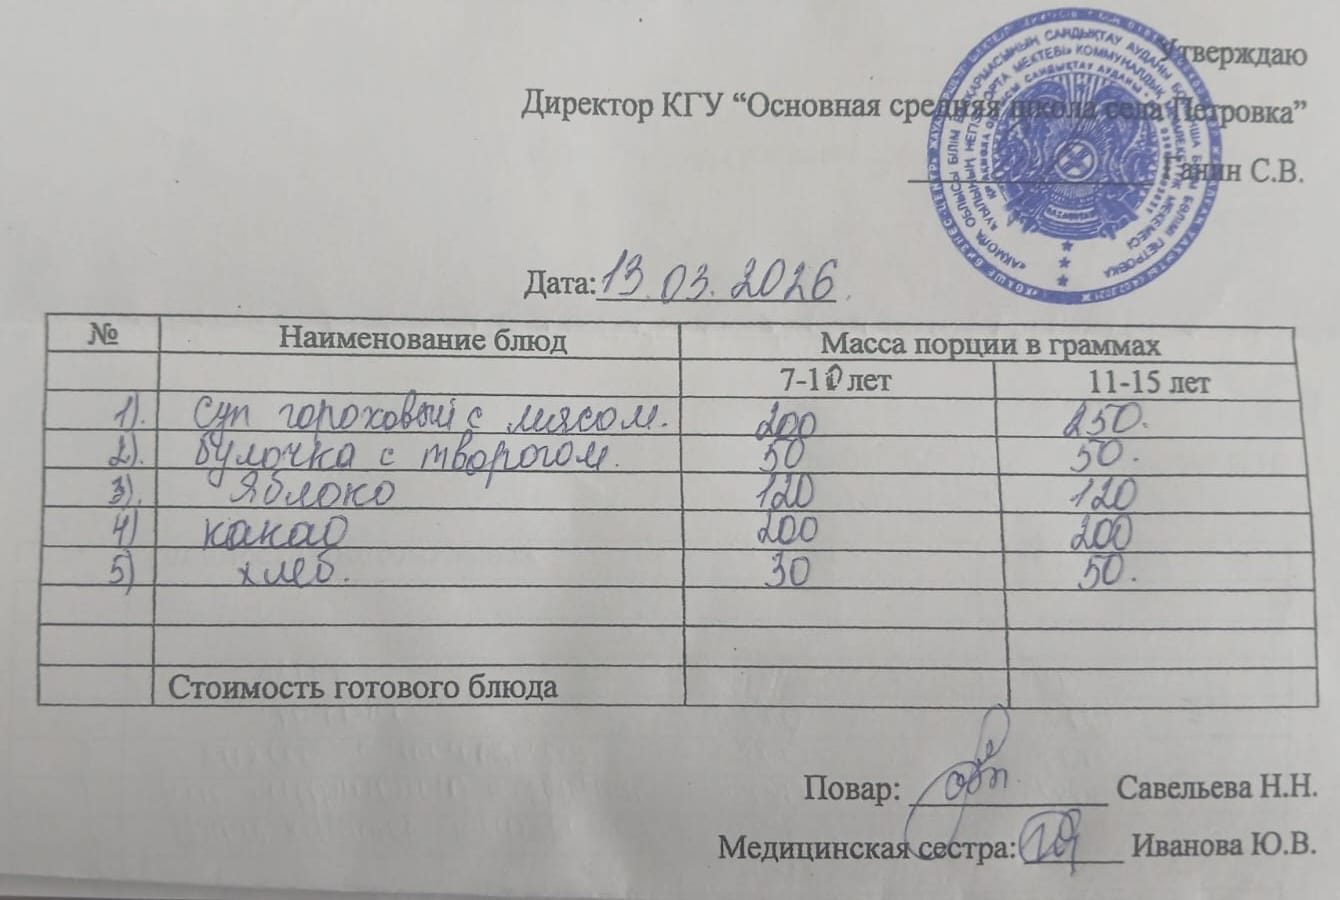 Утверждаю
Директор КГУ “Основная средняя школа села Петровка”
Ганин С.В.
Дата: 13.03.2026.
№ Наименование блюд Масса порции в граммах
7-10 лет 11-15 лет
1). Суп гороховый с мясом. 200 250.
2). Булочка с творогом. 50 50.
3). Яблоко 120 120
4) какао 200 200
5) хлеб. 30 50.
Стоимость готового блюда
Повар: Савельева Н.Н.
Медицинская сестра: Иванова Ю.В.